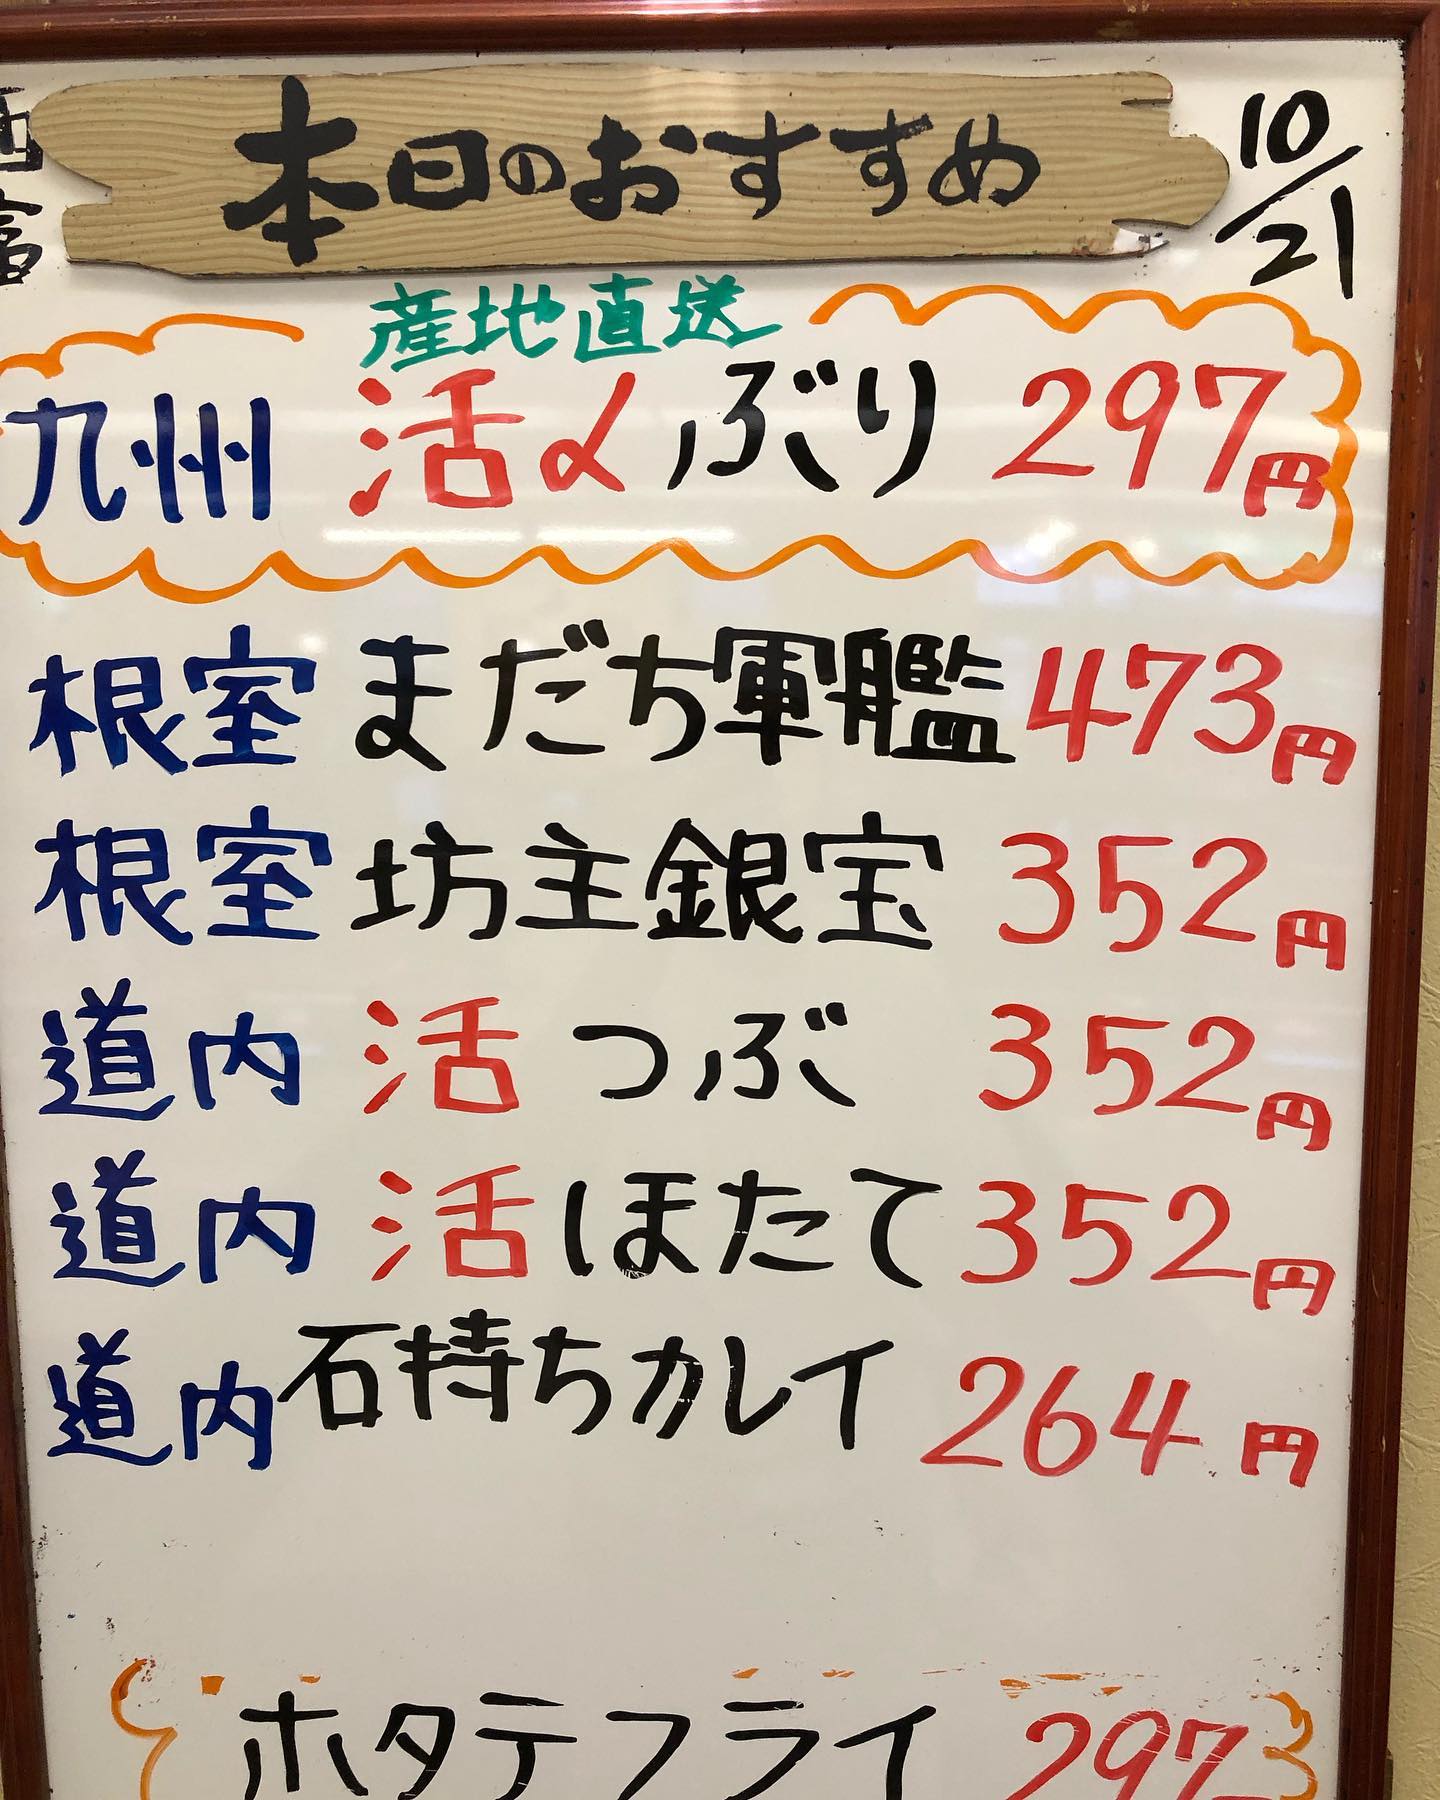 本日のおすすめ
10/21
産地直送
九州 活〆ぶり 297円
根室 まだち軍艦 473円
根室 坊主銀宝 352円
道内 活つぶ 352円
道内 活ほたて 352円
道内 石持ちカレイ 264円
ホタテフライ 297